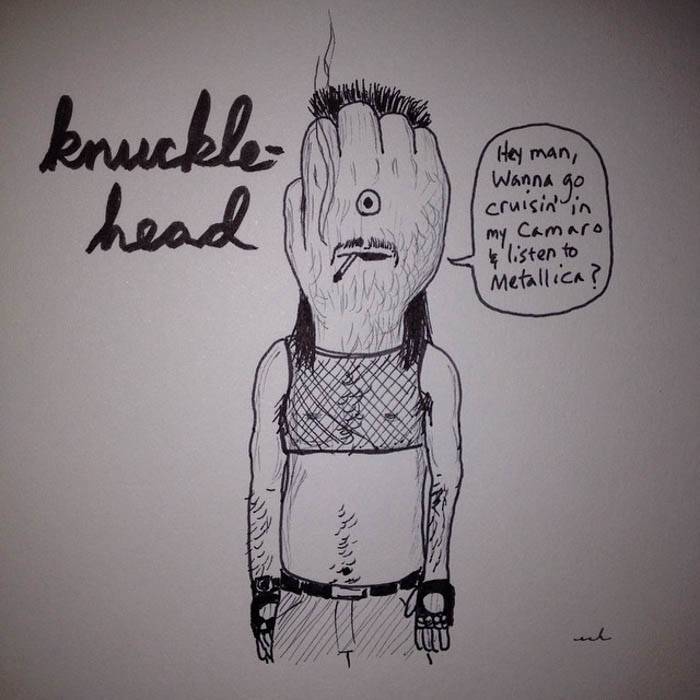 knuckle-
head
Hey man,
Wanna go
cruisin' in
my Camaro
& listen to
Metallica?